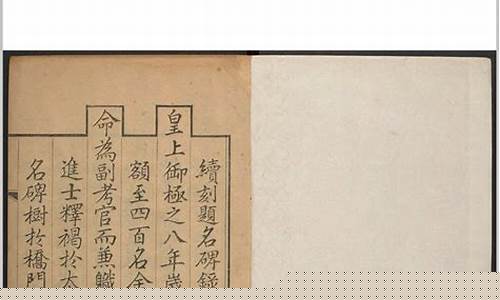 續刻題名碑錄
皇上御極之八年歲
額至四百名余
命為副考官而兼職
進士釋褐於太
名碑樹於橋門